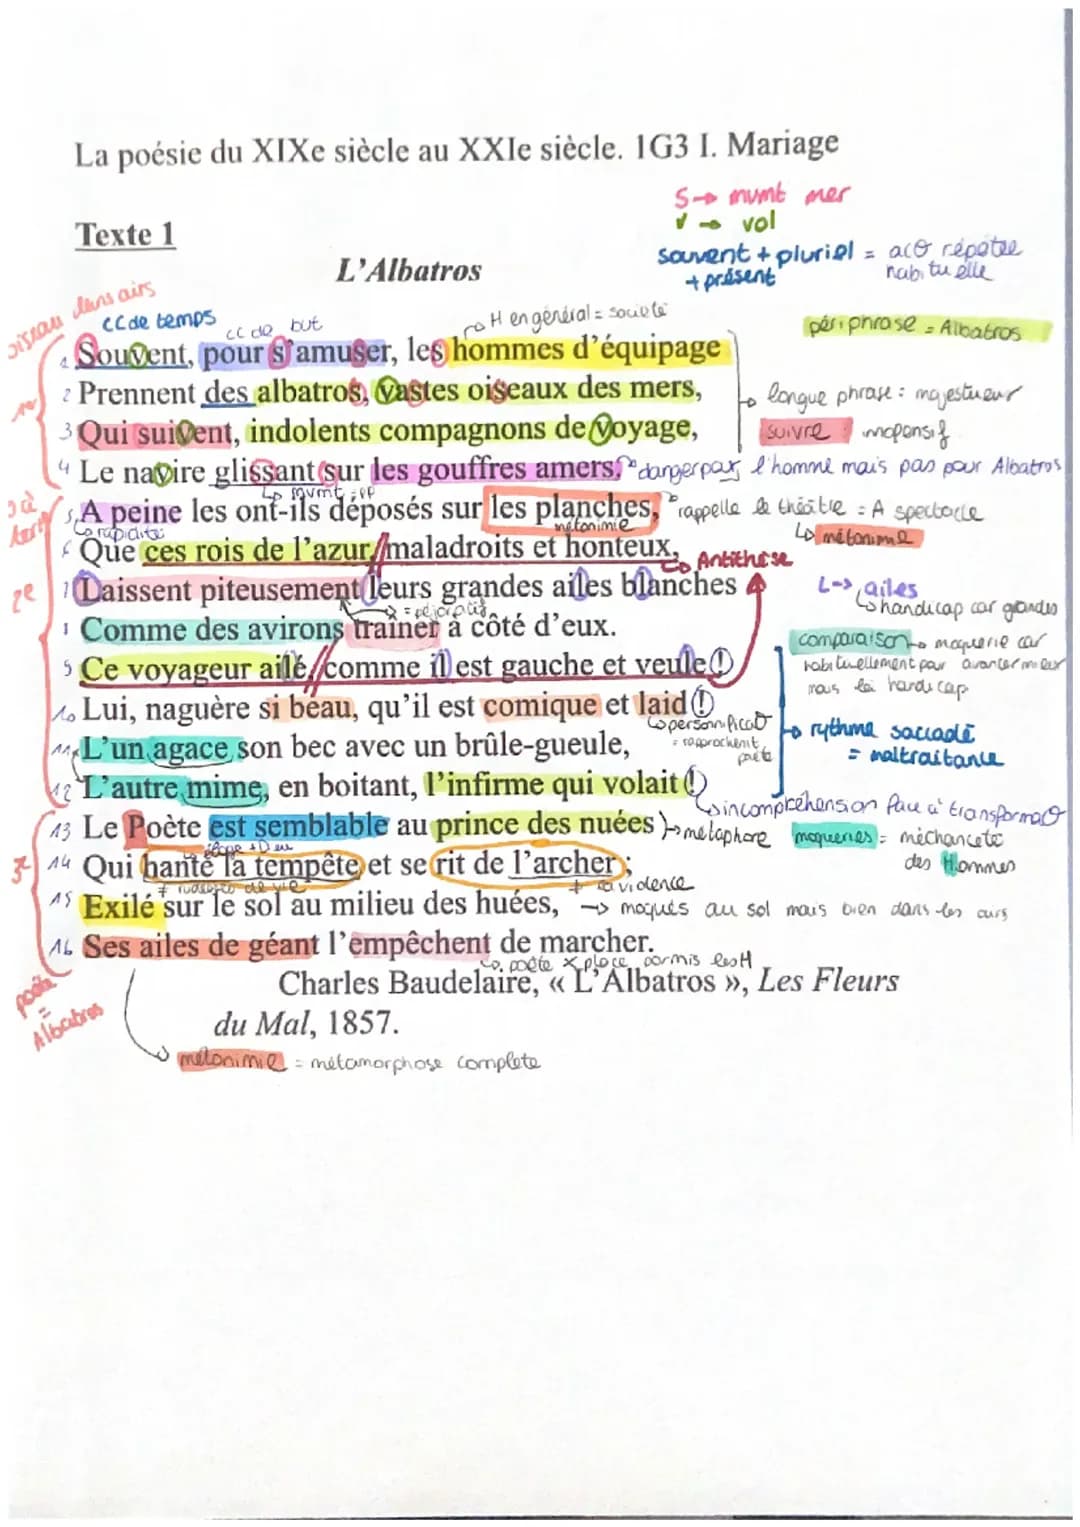 La poésie du XIXe siècle au XXIe siècle. 1G3 I. Mariage
S → mvmt mer
V → vol
Texte 1
souvent + pluriel = aco répétée
+ présent habituelle
L'Albatros
oiseau dans airs
CC de temps
CC de but
H en général = société
périphrase = Albatros
1 Souvent, pour s'amuser, les hommes d'équipage
2 Prennent des albatros, vastes oiseaux des mers,
longue phrase : majestueux
3 Qui suivent, indolents compagnons de voyage,
suivre inopensif
4 Le navire glissant sur les gouffres amers.
danger par l'homme mais pas pour Albatros
mvmt
5 A peine les ont-ils déposés sur les planches,
rappelle le théâtre = A spectacle
rapidité
métonimie
métonimie
6 Que ces rois de l'azur, maladroits et honteux,
Antithèse
2e
7 Laissent piteusement leurs grandes ailes blanches
L → ailes
handicap car grandes
= péjoratif
Comme des avirons traîner à côté d'eux.
comparaison → moquerie car
habituellement pour avancer mieux
mais là handicap
9 Ce voyageur ailé, comme il est gauche et veule !
10 Lui, naguère si beau, qu'il est comique et laid !
personnificat°
= rapprochent poète
rythme saccadé
= maltraitance
11 L'un agace son bec avec un brûle-gueule,
12 L'autre mime, en boitant, l'infirme qui volait !
incompréhension face à transformat°
13 Le Poète est semblable au prince des nuées
métaphore
moqueries = méchanceté
des Hommes
3e
14 Qui hante la tempête et se rit de l'archer ;
+ rudesse de vie
+ la violence
15 Exilé sur le sol au milieu des huées,
→ moqués au sol mais bien dans les airs
16 Ses ailes de géant l'empêchent de marcher.
poète x place parmis les H
poète
=
Albatros
Charles Baudelaire, « L'Albatros », Les Fleurs
du Mal, 1857.
métonimie = métamorphose complète